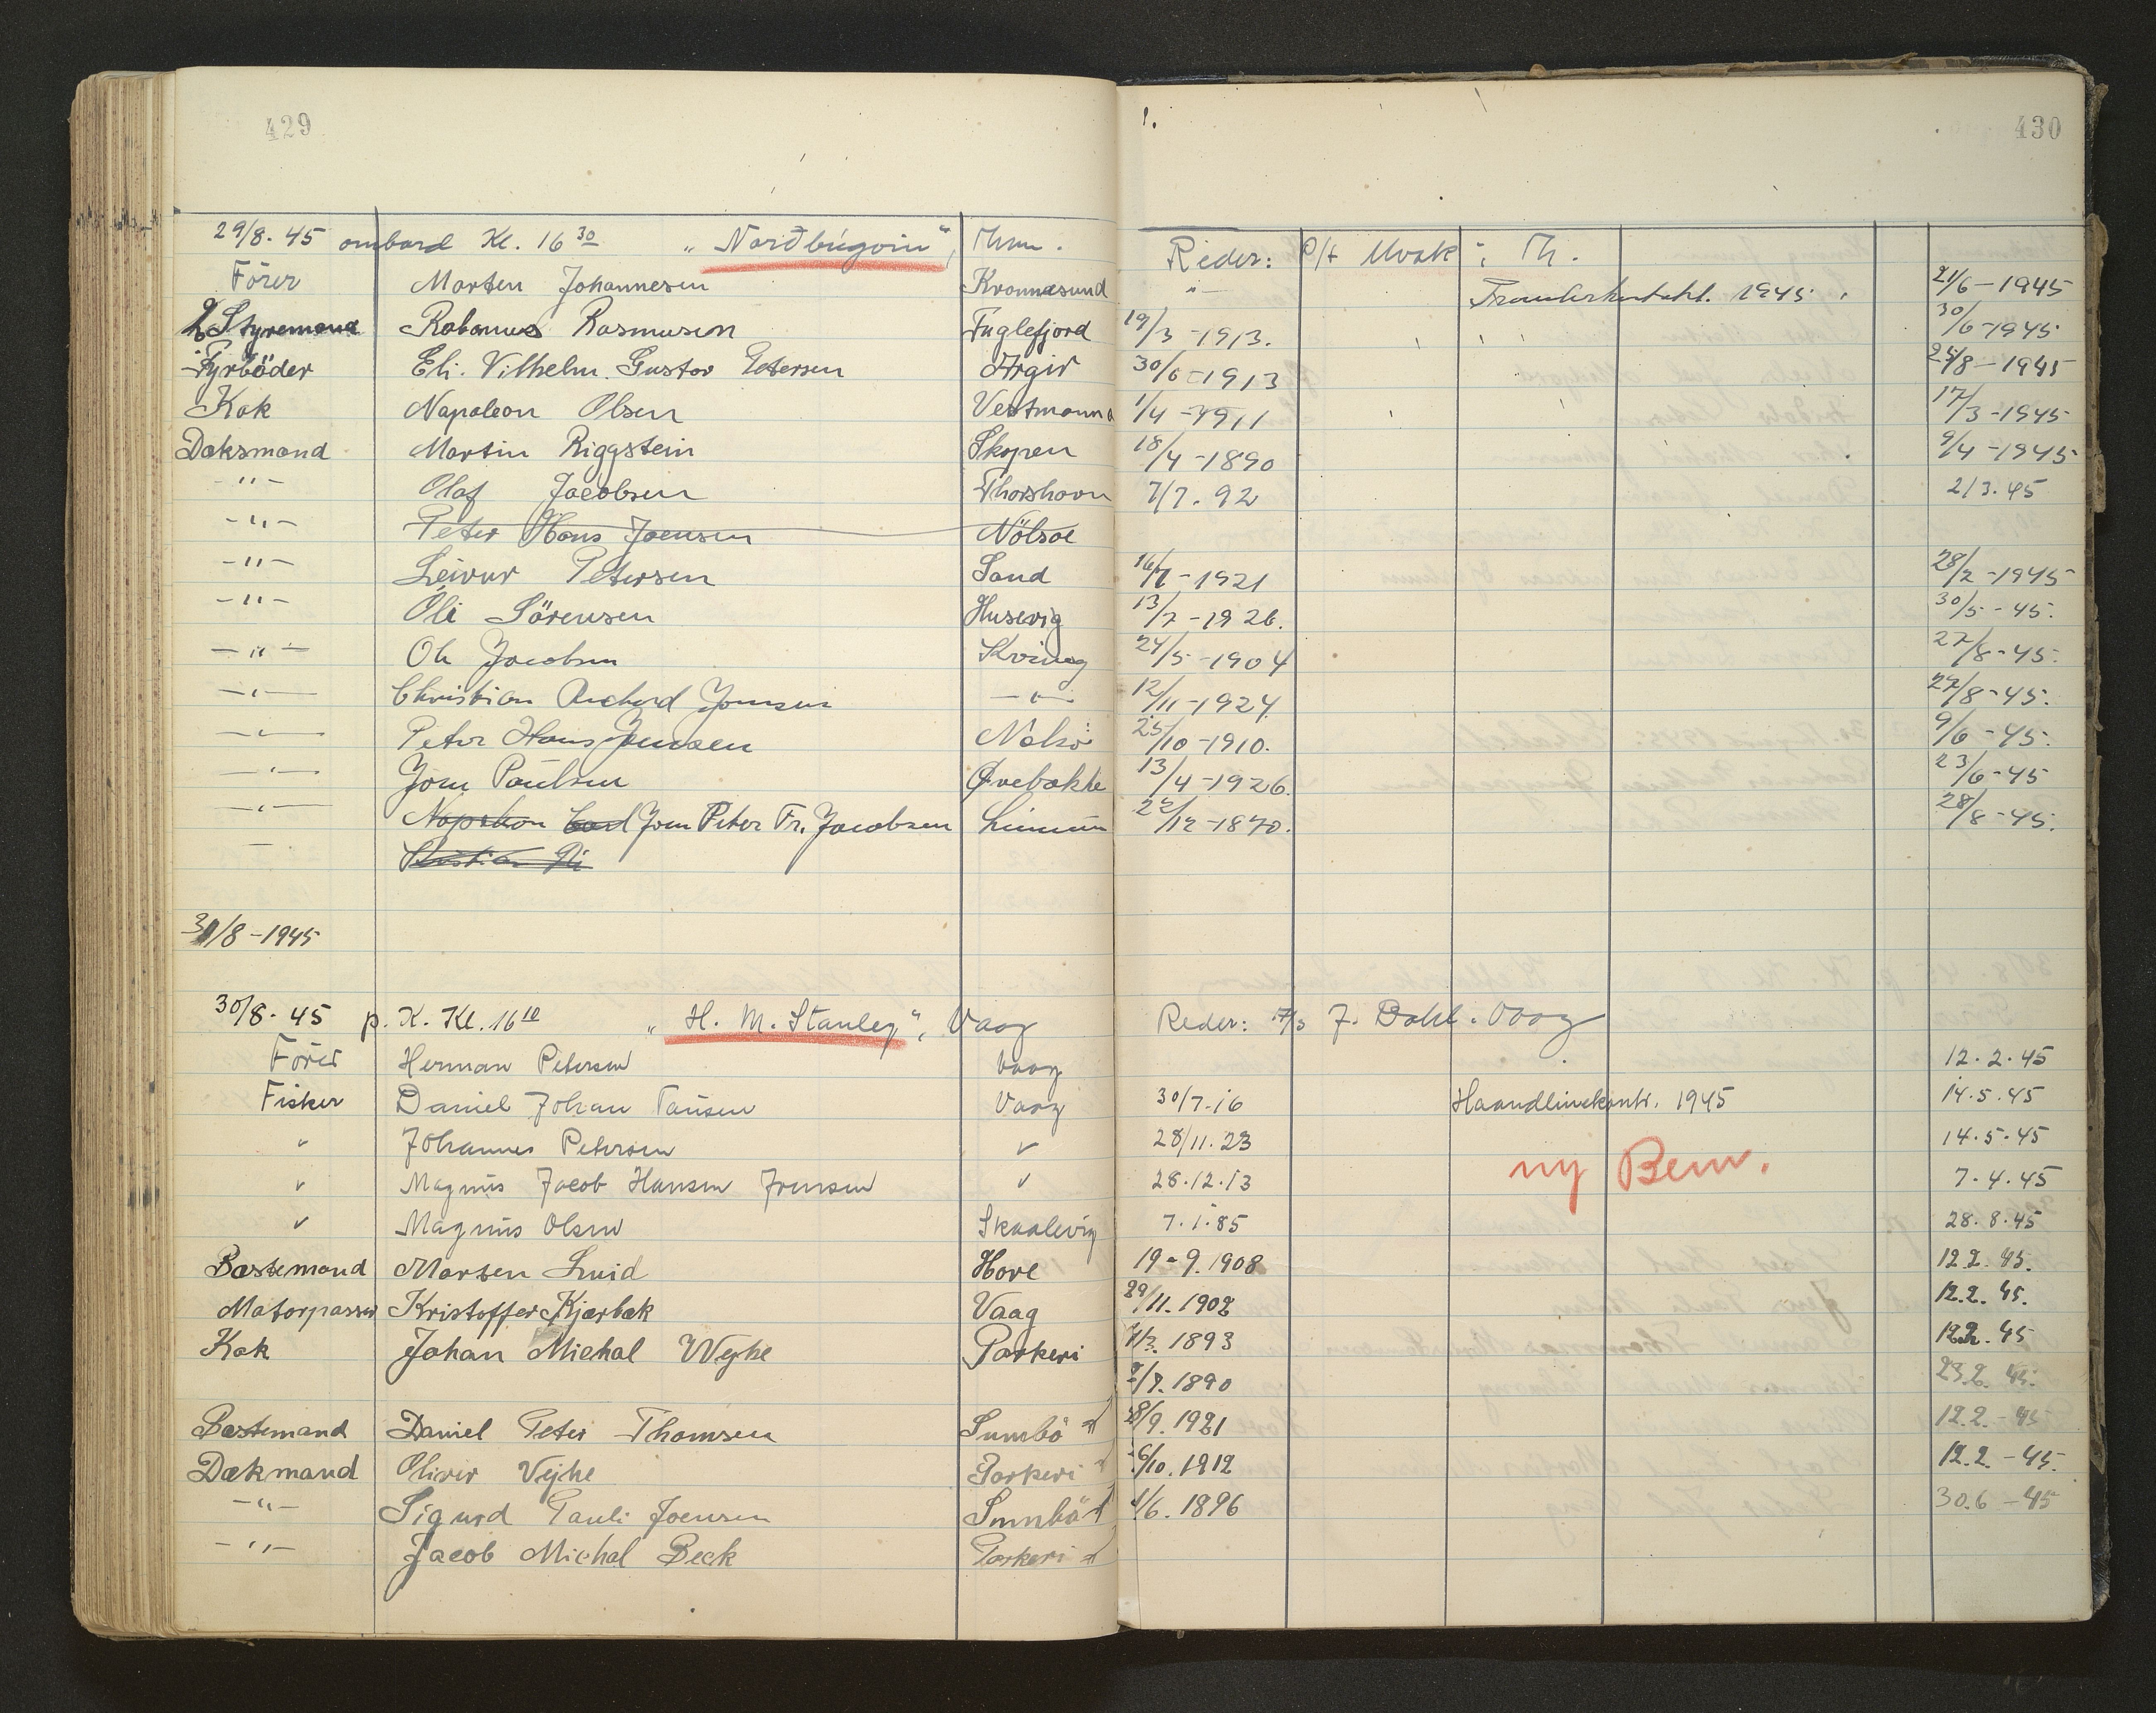 429
430
29/8. 45 ombord Kl. 16 30 "Nordbúgvin", Thvn. Reder: P/f Mvak i Th.
Förer Morten Johannesen Kronnasund -"- Trawlerkontrakt. 1945. 21/6-1945
Styremand Rabanus Rasmusen Fuglefjord 19/3-1913. 30/6-1945
Fyrböder Eli. Vilhelm. Gustav Petersen Argir 30/6-1913 24/8-1945
Kok Napoleon Olsen Vestmanna 1/4-1911 17/3-1945
Dæksmand Martin Riggstein Skopen 18/4-1890 9/4-1945
-"- Olaf Jacobsen Thorshavn 7/7. 92 2/3. 45
-"- Peter Hans Joensen Nölsoe
-"- Leivur Petersen Sand 16/7-1921 28/2-1945
-"- Óli Sörensen Husevig 13/7-1926. 30/5-45.
-"- Ole Jacobsen Kvivig 24/5-1904 27/8-45.
-"- Christian Richard Joensen -"- 12/11-1924. 27/8-45.
-"- Peter Hans Jensen Nolsö 25/10-1910. 9/6-45.
-"- Joen Poulsen Qvebakke 13/4-1926. 23/6-45
-"- Napoleon Carl Joen Peter Fr. Jacobsen 22/12-1870. 28/8-45.
Kristian
31/8-1945
30/8. 45 p. K. Kl. 16 10 "H. M. Stanley", Vaag Reder: J. Dahl. Vaag
Förer Herman Petersen Vaag 12.2.45
Fisker Daniel Johan Tausen Vaag 30/7.16 Haandlinekontr. 1945 14.5.45
" Johannes Petersen " 28/11.23 14.5.45
" Magnus Jacob Hansen Joensen " 28.12.13 ny Bem. 7.4.45
" Magnus Olsen Skaalevig 7.1.85 28.8.45
Bestemand Morten Smid Hove 19-9.1908 12.2.45.
Motorpasser Kristoffer Kjærbæk Vaag 29/11.1902 12.2.45.
Kok Johan Michal Wejhe Porkeri 1/3.1893 12.2.45
2/7.1890 23.2.45.
Bestemand Daniel Peter Thomsen Sumbö 28/9.1921 12.2.-45
Dækmand Oliver Vejhe Porkeri 6/10.1912 12.2.-45.
-"- Sigurd Pauli Joensen Sumbö 1/6.1896 30.6-45
-"- Jacob Michal Beck Porkeri